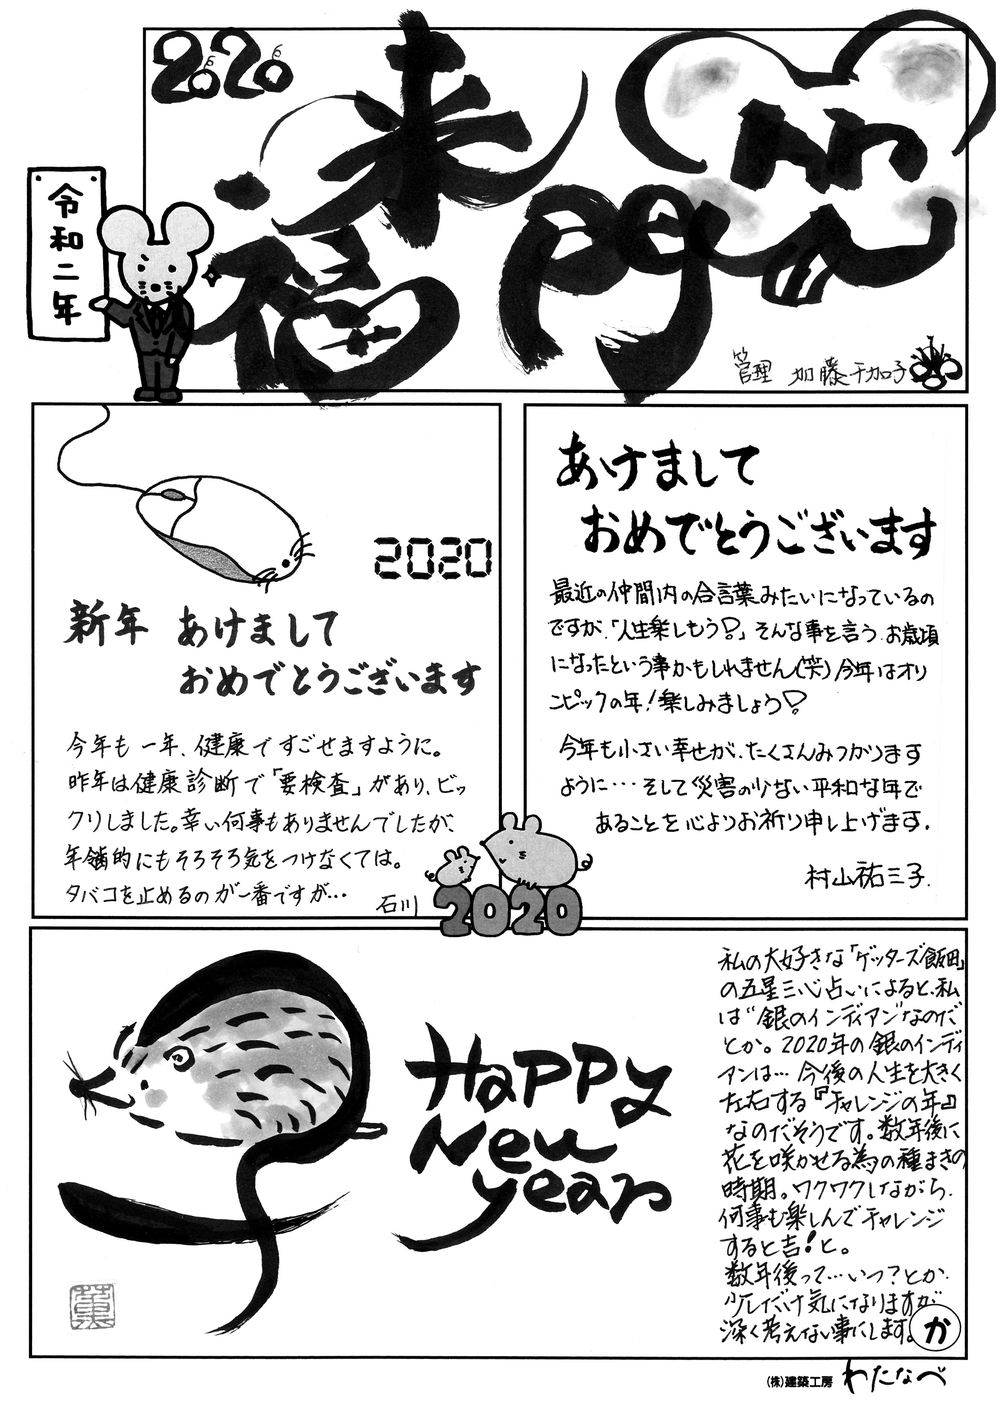 2020
笑門
来福
令和二年
管理 加藤千加子
2020
新年 あけまして
おめでとうございます
今年も一年、健康ですごせますように。
昨年は健康診断で「要検査」があり、ビッ
クリしました。幸い何事もありませんでしたが、
年齢的にもそろそろ気をつけなくては。
タバコを止めるのが一番ですが…
石川
あけまして
おめでとうございます
最近の仲間内の合言葉みたいになっているの
ですが、「人生楽しもう!?」そんな事を言う、お歳頃
になったという事かもしれません(笑)今年はオリ
ンピックの年!楽しみましょう!?
今年も小さい幸せが、たくさんみつかります
ように…そして災害の少ない平和な年で
あることを心よりお祈り申し上げます。
村山祐三子.
2020
Happy
New
year
私の大好きな「ゲッターズ飯田」
の五星三心占いによると、私
は"銀のインディアン"なのだ
とか。2020年の銀のインディ
アンは…今後の人生を大きく
左右する『チャレンジの年』
なのだそうです。数年後に
花を咲かせる為の種まきの
時期。ワクワクしながら、
何事も楽しんでチャレンジ
すると吉!と。
数年後って…いつ?とか、
少しだけ気になりますが
深く考えない事にします。
か
(株)建築工房 わたなべ